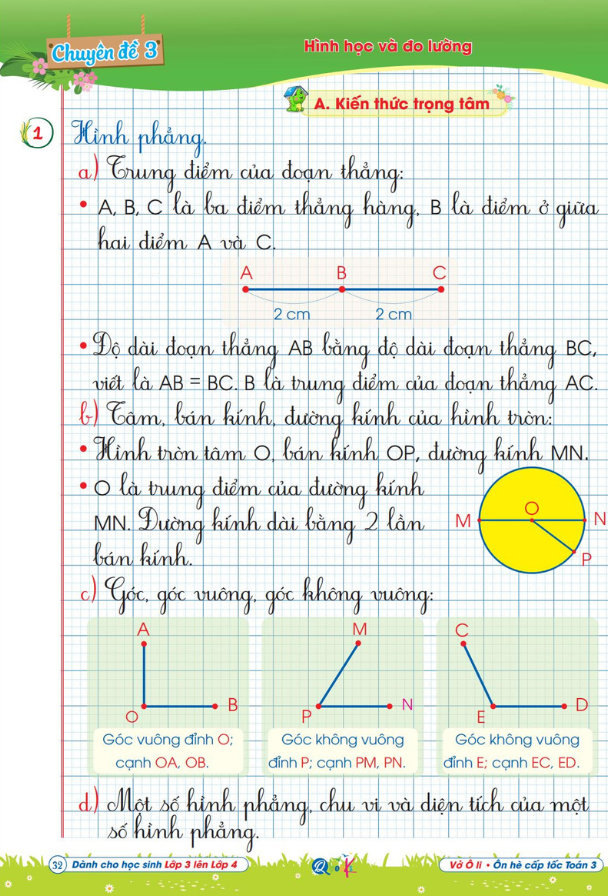 Chuyên đề 3
Hình học và đo lường
A. Kiến thức trọng tâm
1 Hình phẳng.
a) Trung điểm của đoạn thẳng:
• A, B, C là ba điểm thẳng hàng, B là điểm ở giữa
hai điểm A và C.
A B C
2 cm 2 cm
• Độ dài đoạn thẳng AB bằng độ dài đoạn thẳng BC,
viết là AB = BC. B là trung điểm của đoạn thẳng AC.
b) Tâm, bán kính, đường kính của hình tròn:
• Hình tròn tâm O, bán kính OP, đường kính MN.
• O là trung điểm của đường kính
MN. Đường kính dài bằng 2 lần
bán kính.
O
M N
P
c) Góc, góc vuông, góc không vuông:
A
O B
Góc vuông đỉnh O;
cạnh OA, OB.
M
P N
Góc không vuông
đỉnh P; cạnh PM, PN.
C
E D
Góc không vuông
đỉnh E; cạnh EC, ED.
d) Một số hình phẳng, chu vi và diện tích của một
số hình phẳng.
32 Dành cho học sinh Lớp 3 lên Lớp 4
Vở Ô li • Ôn hè cấp tốc Toán 3